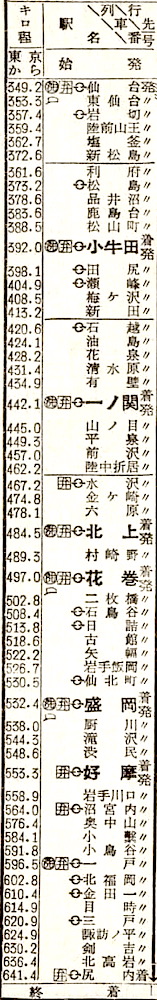 キロ程 駅名 列車番号 行先
東京から 始発
349.2 仙台 発
353.3 東仙台 〃
357.4 岩切 〃
359.4 陸前山王 〃
362.7 塩釜 〃
372.6 新松島 〃
361.6 利府 〃
373.2 松島 〃
378.6 品井沼 〃
383.6 鹿島台 〃
388.5 松山町 〃
392.0 小牛田 着発
398.1 田尻 〃
404.9 瀬峰 〃
408.5 梅ケ沢 〃
413.2 新田 〃
420.6 石越 〃
424.1 油島 〃
428.2 花泉 〃
431.4 清水原 〃
434.9 有壁 〃
442.1 一ノ関 着発
445.0 山ノ目 〃
449.3 平泉 〃
457.0 前沢 〃
462.2 陸中折居 〃
467.2 水沢 〃
474.8 金ケ崎 〃
478.1 六原 〃
484.5 北上 着発
489.3 村崎野 〃
497.0 花巻 着発
502.8 二枚橋 〃
508.4 石鳥谷 〃
513.8 日詰 〃
518.6 古館 〃
522.2 矢幅 〃
526.7 岩手飯岡 〃
530.5 仙北町 〃
532.4 盛岡 着発
538.0 厨川 〃
544.3 滝沢 〃
548.6 渋民 〃
553.3 好摩 着発
558.9 岩手川口 〃
564.0 沼宮内 〃
576.4 奥中山 〃
584.1 小繋 〃
591.8 小鳥谷 〃
596.5 一戸 〃
602.8 北福岡 〃
610.4 金田一 〃
614.9 目時 〃
620.9 三戸 〃
624.9 諏訪ノ平 〃
630.2 剣吉 〃
636.4 北高岩 〃
641.4 尻内 着
終着